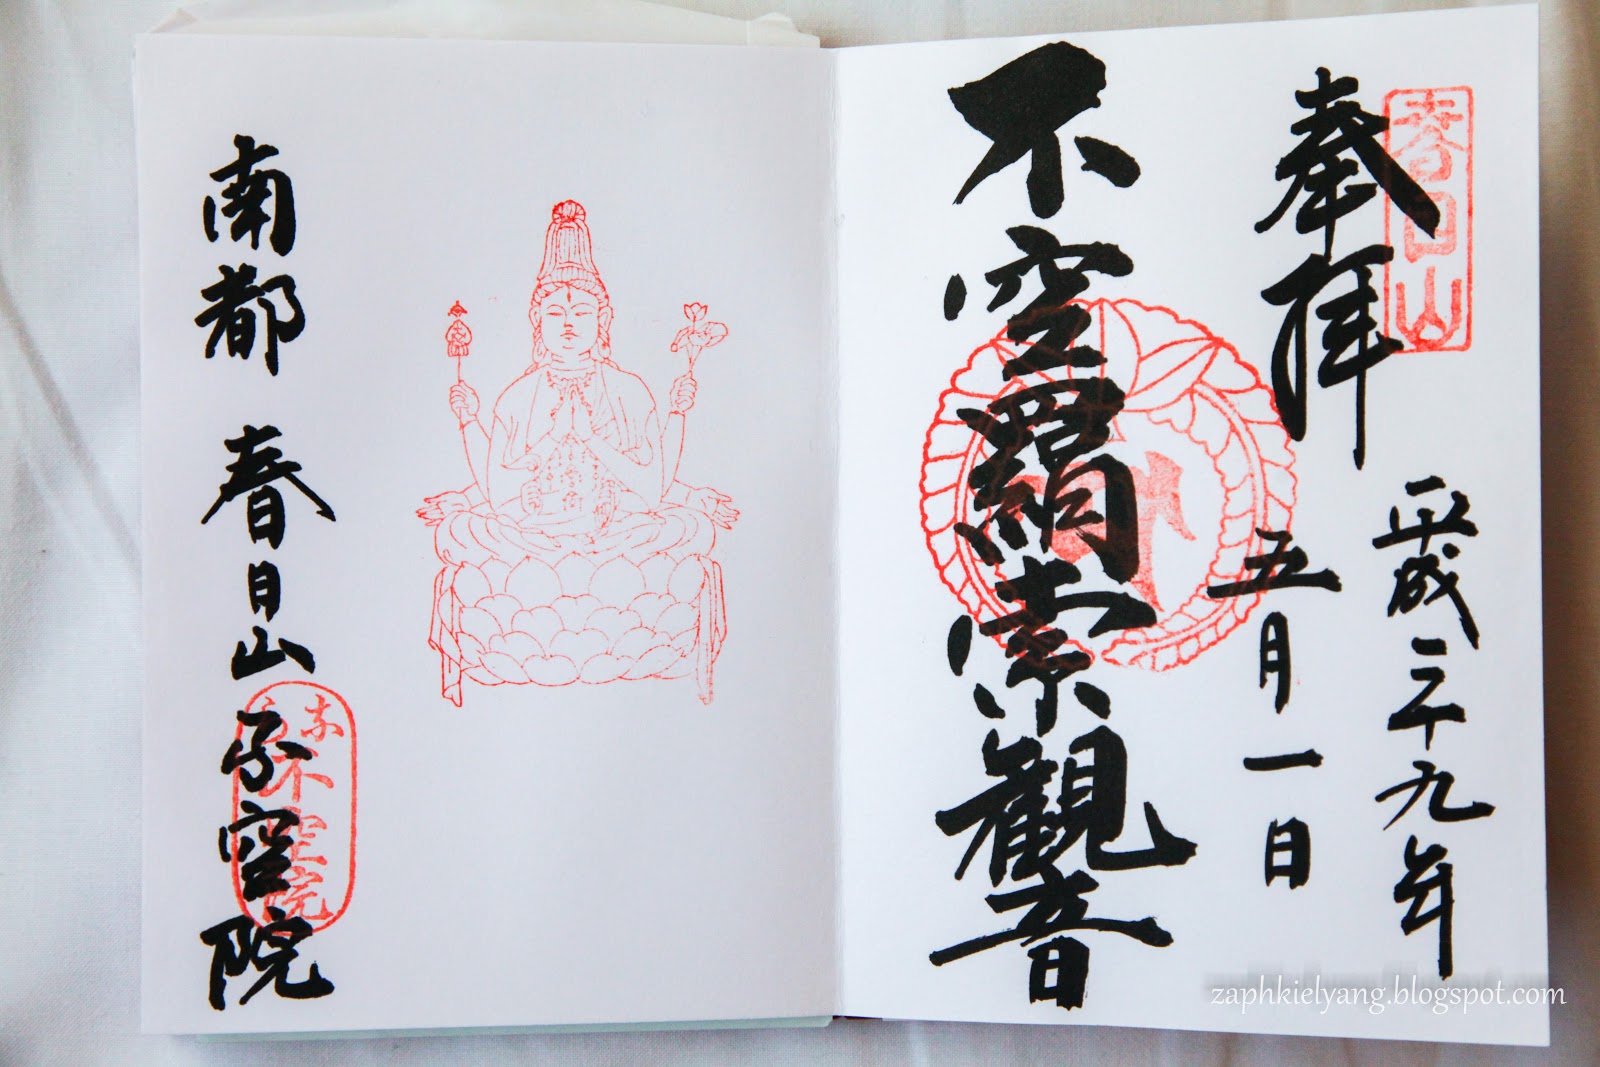 春日山
奉拝
平成二十九年
五月一日
不空羂索観音
南都 春日山 不空院
不空院
zaphkielyang.blogspot.com